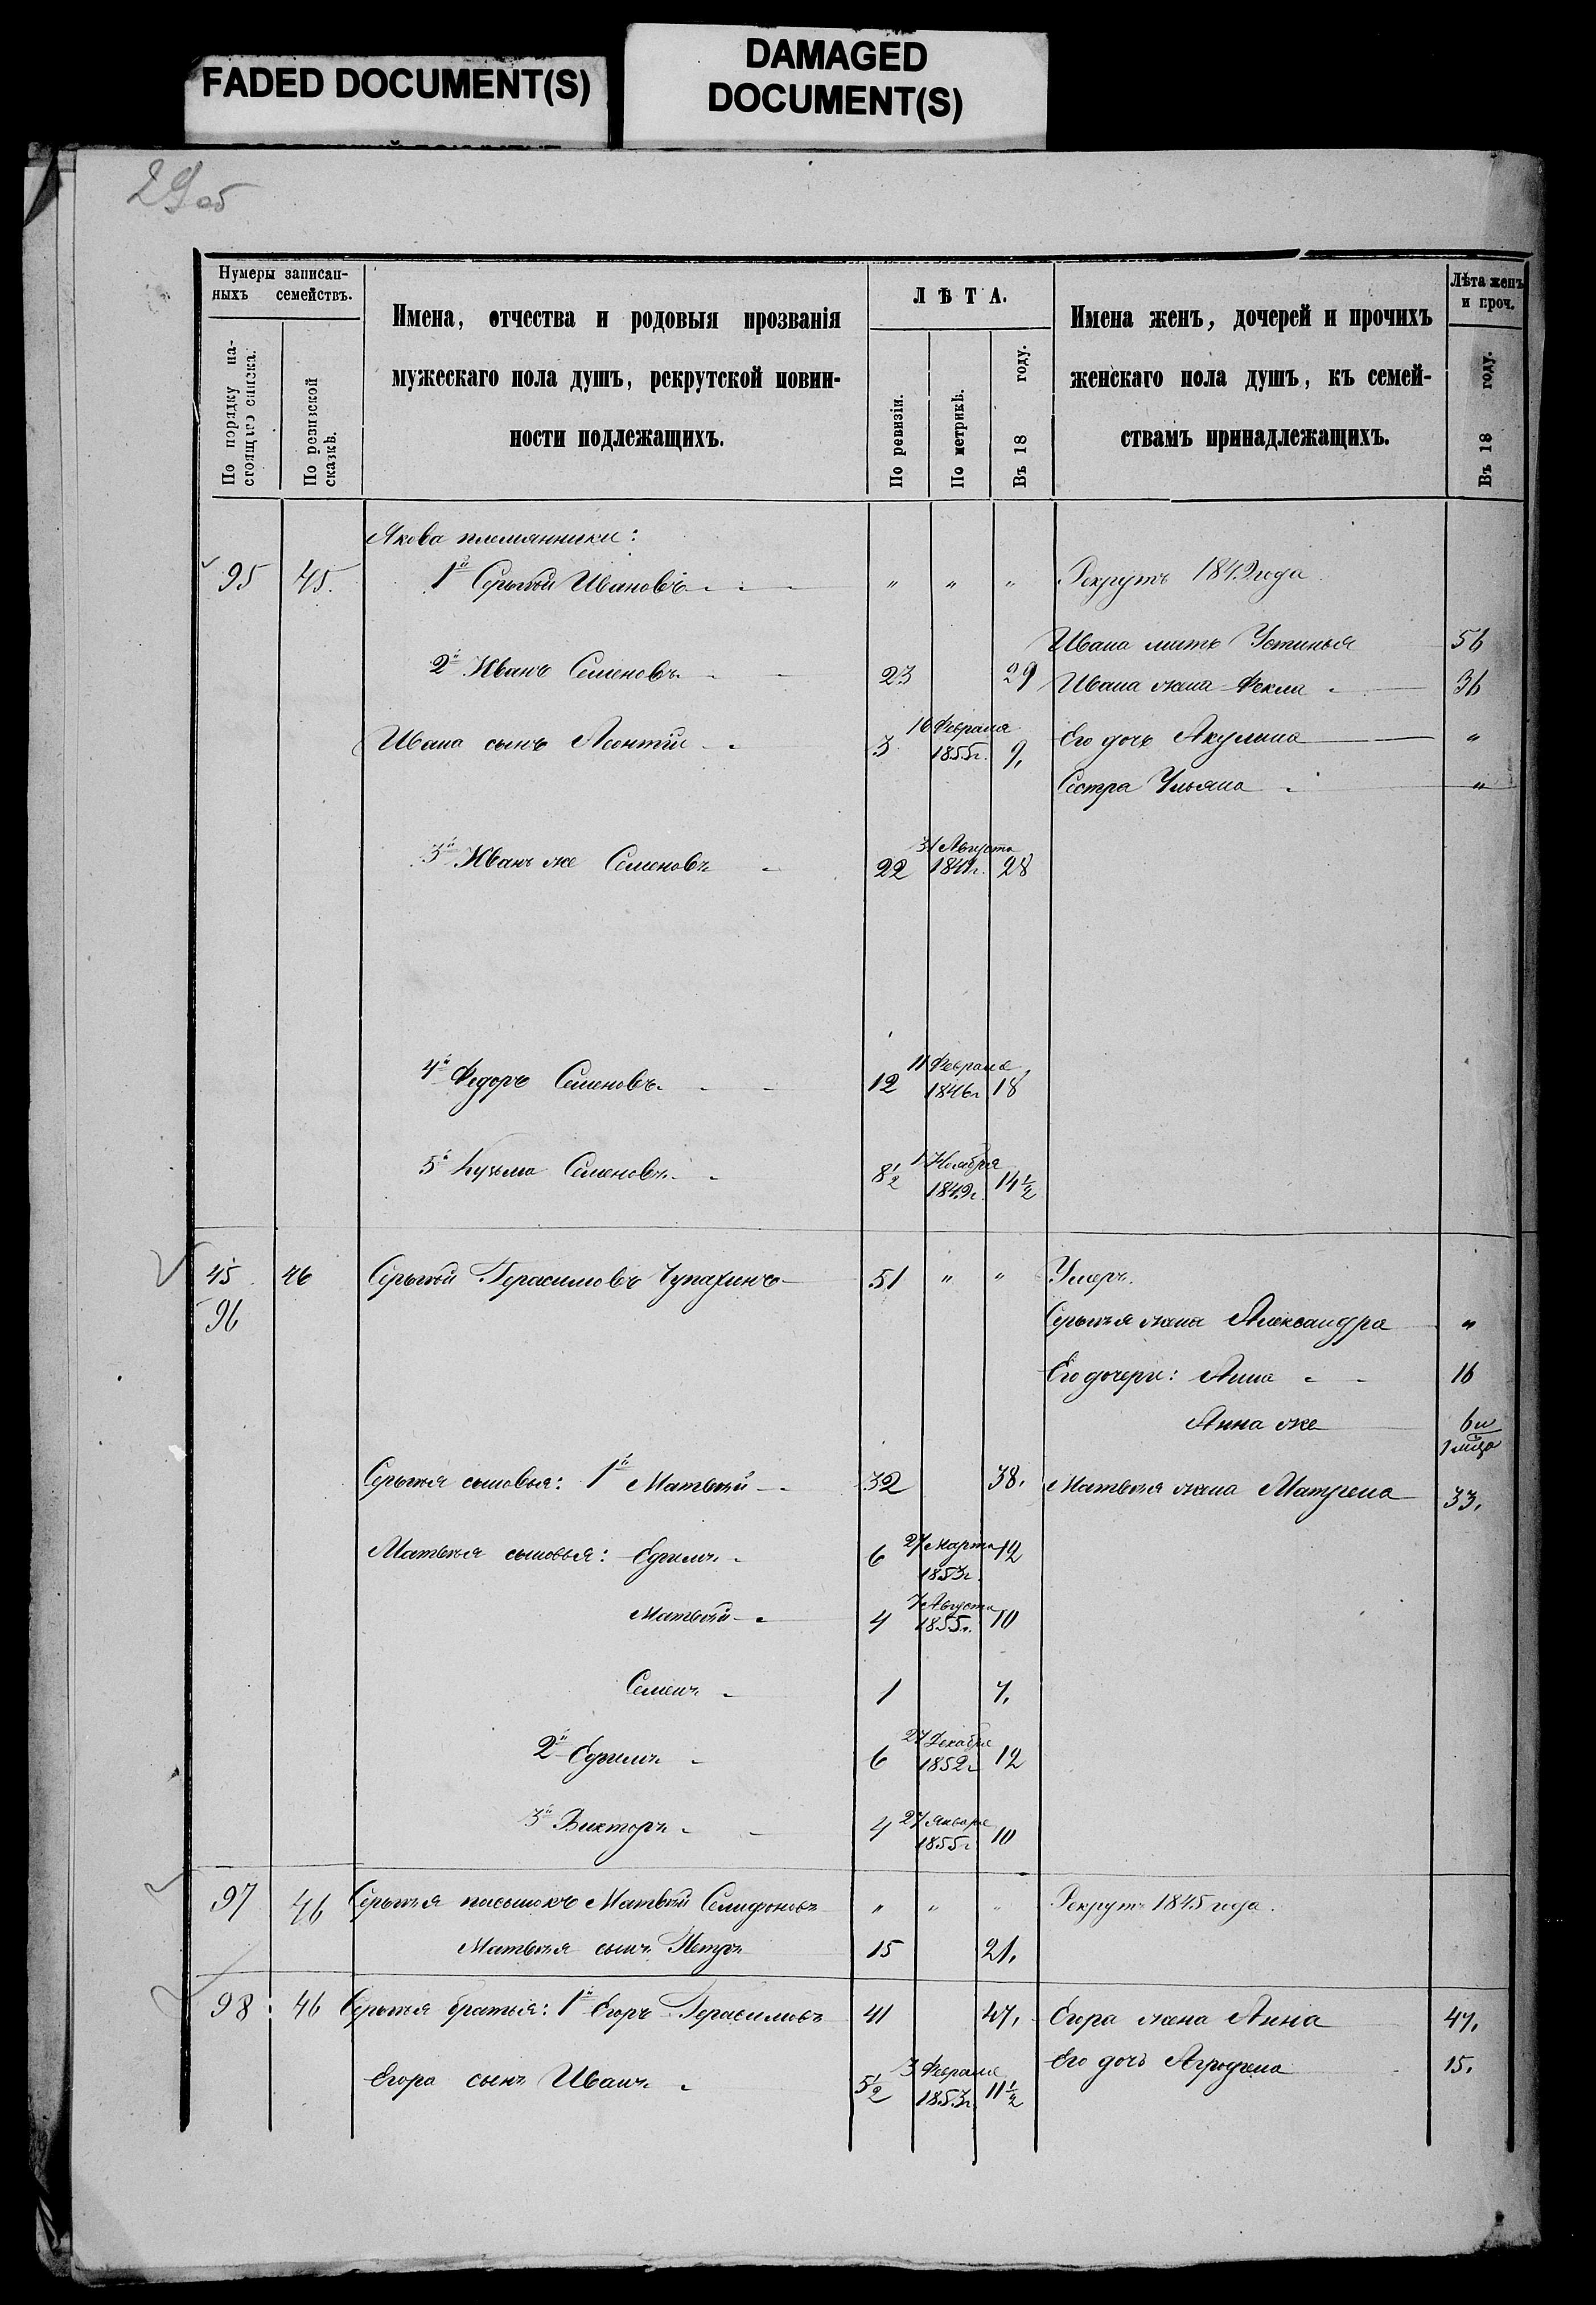 FADED DOCUMENT(S)
DAMAGED
DOCUMENT(S)
29 об
Нумеры записан-
ныхъ семействъ.
По порядку на-
стоящаго списка.
По ревизской
сказкѣ.
Имена, отчества и родовыя прозванія
мужескаго пола душъ, рекрутской повин-
ности подлежащихъ.
ЛѢТА.
По ревизіи.
По метрикѣ.
Въ 18 году.
Имена женъ, дочерей и прочихъ
женскаго пола душъ, къ семей-
ствамъ принадлежащихъ.
Лѣта женъ
и проч.
Въ 18 году.
Якова племянники:
95 45. 1й Сергѣй Ивановъ " " " Рекрутъ 1849 года.
Ивана мать Устинья 56
2й Иванъ Семеновъ 23 29 Ивана жена Фекла 36
Ивана сынъ Леонтій 3 16 Февраля 1855г. 9, Его дочь Акулина "
Сестра Ульяна "
3й Иванъ же Семеновъ 22 31 Августа 28
4й Федоръ Семеновъ 12 11 Февраля 1846г 18
5й Кузьма Семеновъ 8½ 1 Ноября 1849г. 14½
45. 46 Сергѣй Герасимовъ Чупахинъ 51 " " Умеръ.
96 Сергѣя жена Александра "
Его дочери: Анна 16
Анна же 6 и
1 мѣсяца
Сергѣя сыновья: 1й Матвѣй 32 38. Матвѣя жена Матрена 33,
Матвѣя сыновья: Ефимъ 6 27 Марта 1853г. 12
Матвѣй 4 7 Августа 1855г. 10
Семенъ 1 7,
2й Ефимъ 6 27 Декабря 1852г 12
3й Викторъ 4 27 Января 1855г 10
97 46 Сергѣя пасынокъ Матвѣй Селифоновъ " " " Рекрутъ 1845 года.
Матвѣя сынъ Петръ 15 21,
98. 46 Сергѣя братья: 1й Егоръ Герасимовъ 41 47, Егора жена Анна 47,
Его дочь Агрофена 15.
Егора сынъ Иванъ 5½ 3 Февраля 1853г 11½